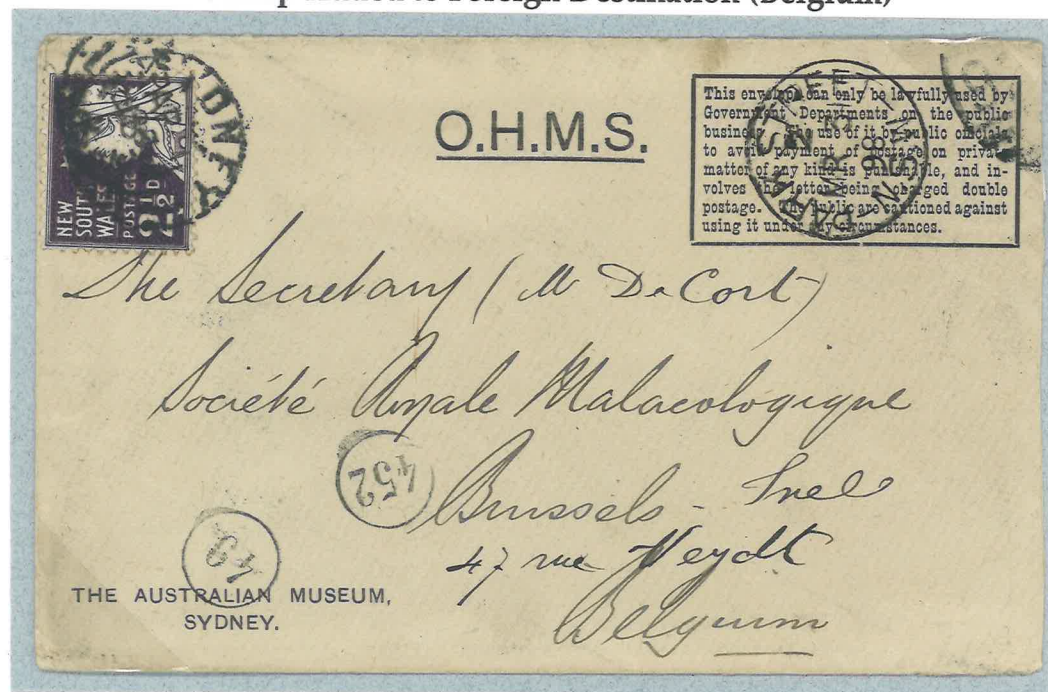 to Foreign Destination (Belgium)
NEW
SOUTH
WALES
POSTAGE
2½D
SYDNEY
O.H.M.S.
This envelope can only be lawfully used by
Government Departments on the public
business. The use of it by public officials
to avoid payment of postage on private
matter of any kind is punishable, and in-
volves the letter being charged double
postage. The public are cautioned against
using it under any circumstances.
MR
98
N.S.W
The Secretary (M De Cort)
Société Royale Malacologique
452
Brussels -
49
47 rue Veydt
Belgium
THE AUSTRALIAN MUSEUM,
SYDNEY.